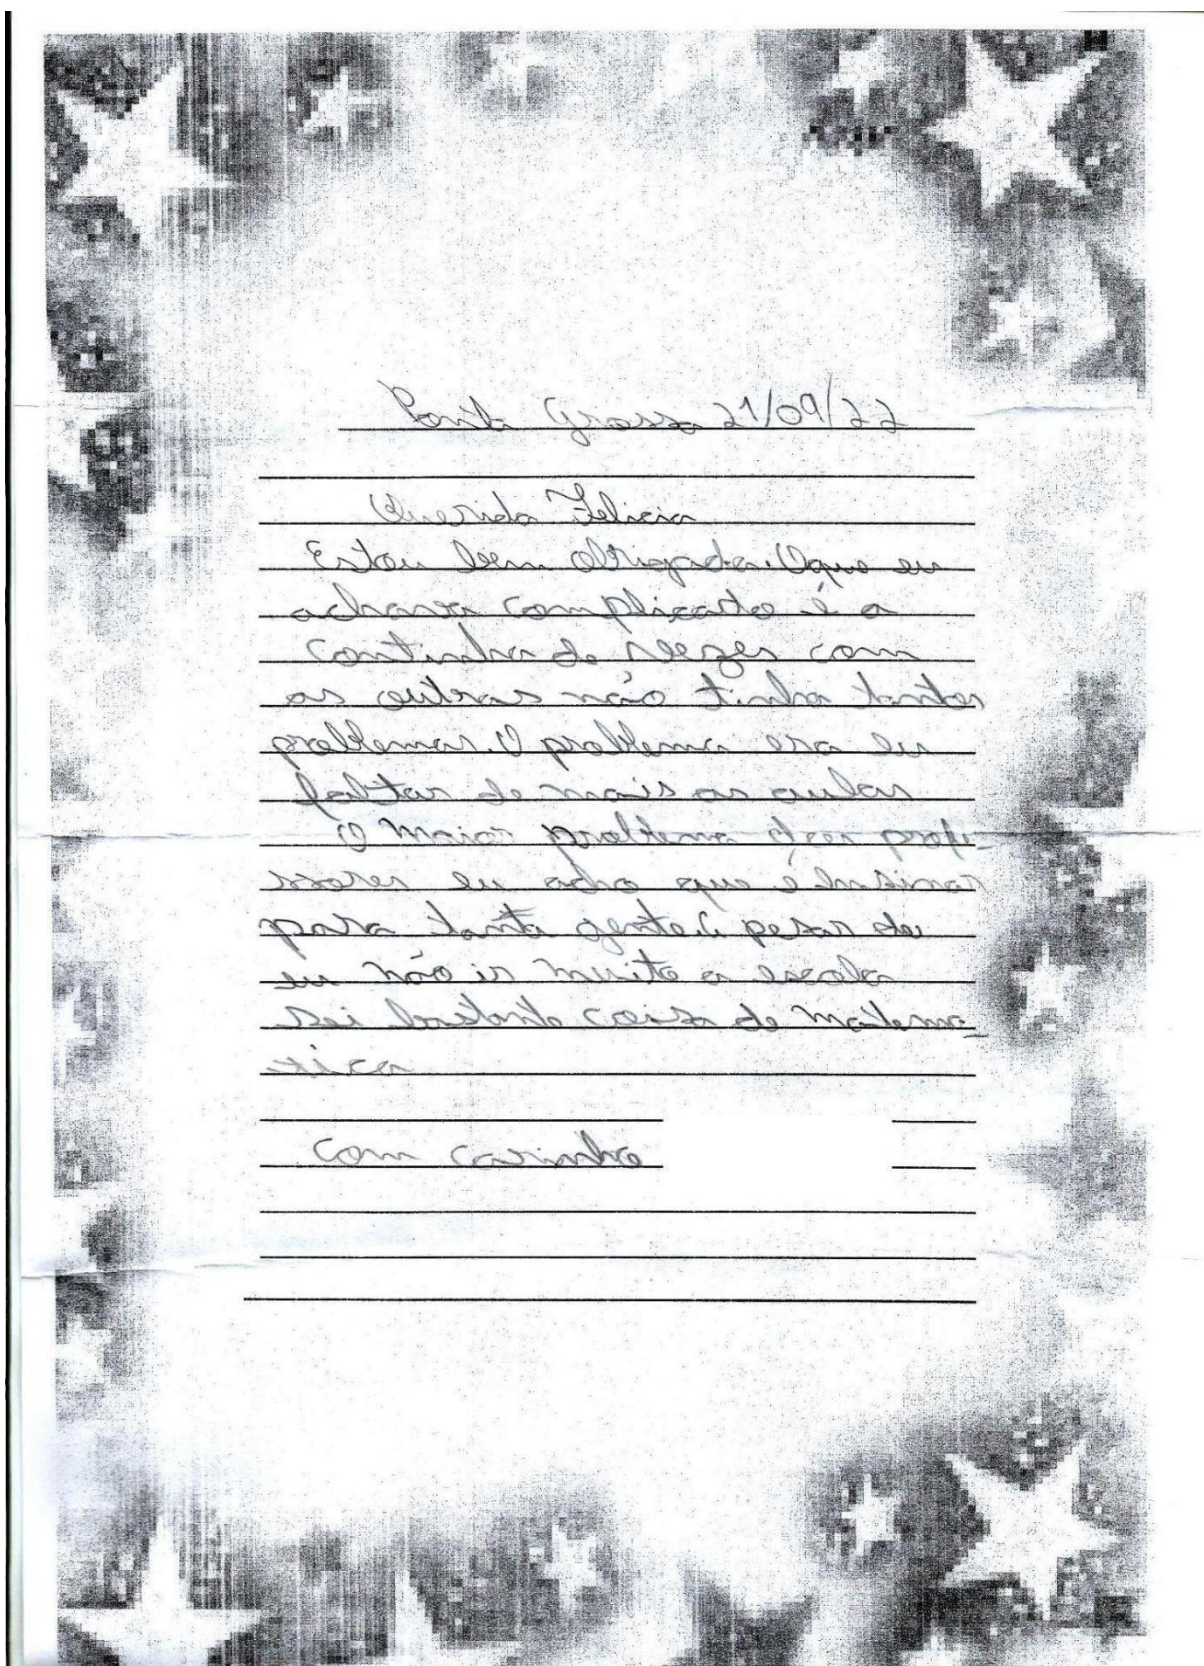 Ponta Grossa 21/09/22
Querida Felicia
Estou bem obrigada. Oque eu
achava complicado é a
continha de vezes com
as outras não tinha tantos
problemas. O problema era eu
faltar de mais as aulas
O maior problema dos profe-
ssores eu acho que é ensinar
para tanta gente. A pesar de
eu não ir muito a escola
sei bastante coisa de matema-
tica
com carinho